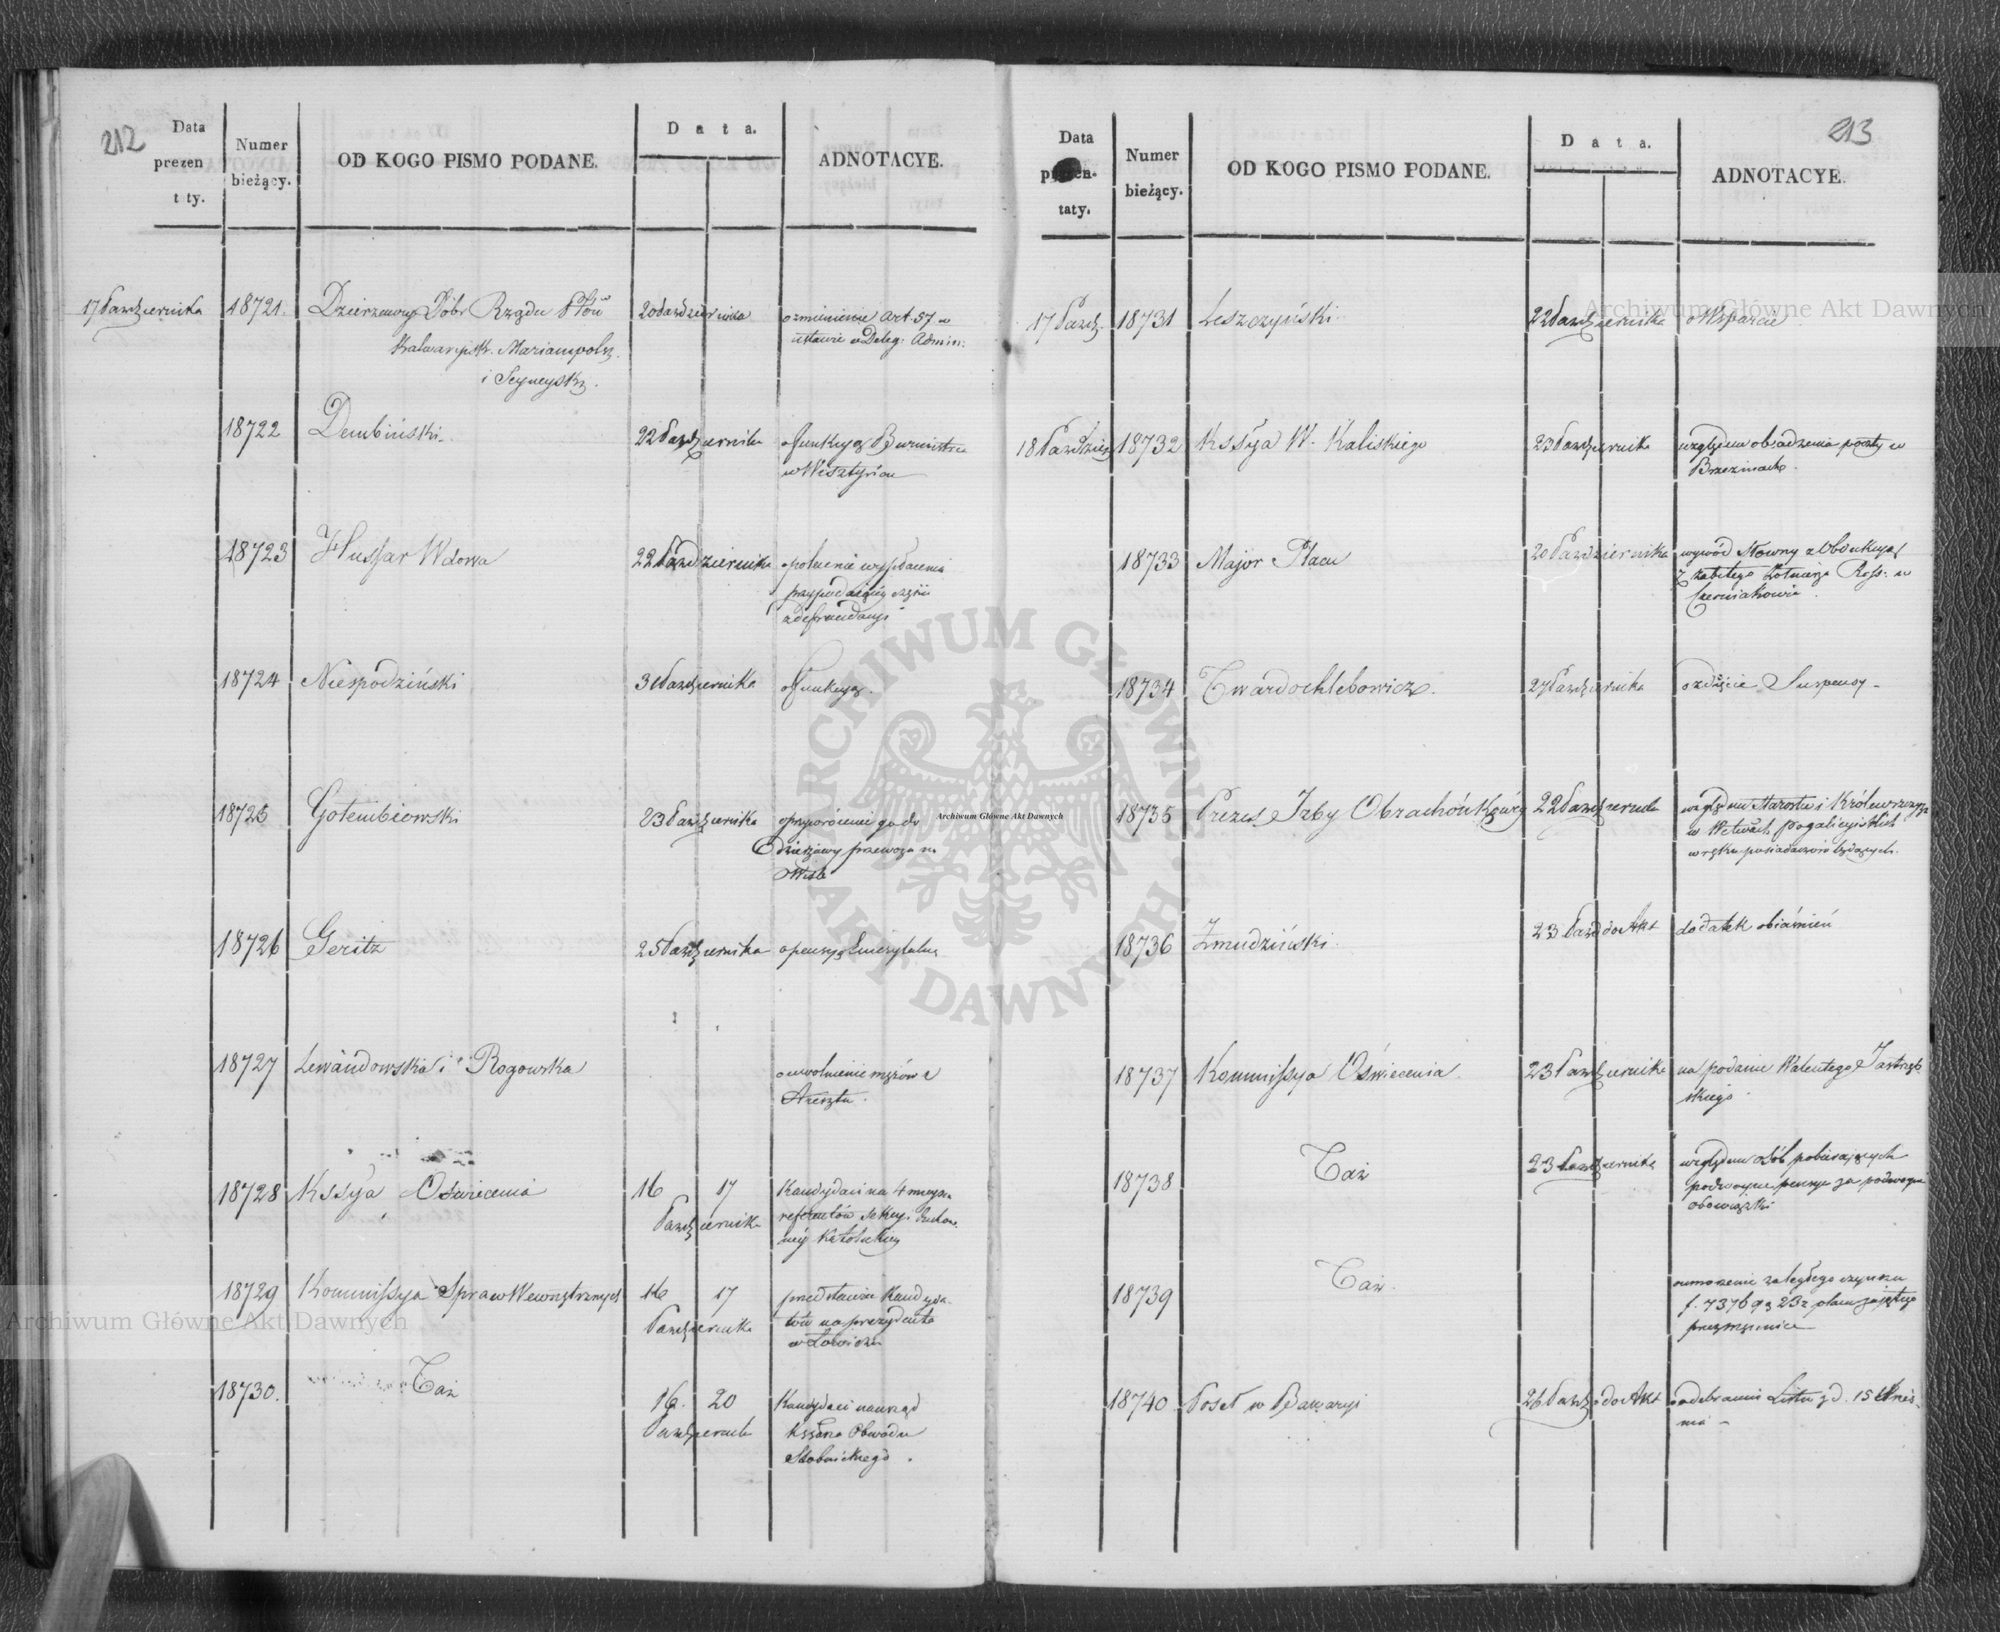 212
Data prezen t ty.
Numer bieżący.
OD KOGO PISMO PODANE.
Data.
ADNOTACYE.
17 Października 18721. Dzierzawcy Dóbr Rządu 20 Października o zmienienie Art. 57 w
Kalwaryisk. Mariampolsk. ustawie o Deleg: Admin:
i Seyneysk.
18722 Dembiński 22 Października o funkcyą Burmistrza
w Wisztyńcu
18723 Hussar Wdowa 22 Października
18724 Niespodziński 31 Października o funkcyą.
18725 Gołembiowski 23 Października
dzierżawy przewozu na
Wiśle
18726 Geritz 25 Października o pensyą Emerytalną
18727 Lewandowska i Rogowska o uwolnienie mężów z
Aresztu.
18728 Kssya Oświecenia 16 17 Kandydaci na 4
Października referentów Sekcyi Duchow-
néy Katolickiey
18729 Kommissya Spraw Wewnętrznych 16 17 przedstawia Kandyda-
Października tów na prezydenta
w Łowiczu
18730. Taż 16. 20 Kandydaci na urząd
Października Kssarza Obwodu
Stobnickiego.
213
Data prezen-taty.
Numer bieżący.
OD KOGO PISMO PODANE.
Data.
ADNOTACYE.
17 Paźdz. 18731 Leszczyński 22 Października o Wsparcie
18 Paździer 18732 Kssya W. Kaliskiego 23 Października względem obsadzenia poczty w
Brzezinach.
18733 Major Placu 20 Października wywód Słowny z Obdukcyi
z zabitego Żołnierza Ross: w
Czerniakowie.
18734 Twardochlebowicz. 27 Października o zdjęcie Suspensy
18735 Prezes Izby Obrachunkowey 22 Października względem Starostw i Królewszczyzn
w Wctwach pogalicyiskich
w ręku posiadaczów będących.
18736 Żmudziński 23 Paźd do Akt dodatek obiaśnień
18737 Kommissya Oświecenia 23 Października na podanie Walentego Jastrzęb-
skiego
18738 Taż 23 Października względem osób pobierających
podwoyne pensye za podwoyne
obowiązki
18739 Taż umorzenie zaległego czynszu
f. 7376 g 23 z placu zajętego
przez
18740 Poseł w Bawaryi 26 Paźdz do Akt o odebraniu Listu z d. 15 Wrześ-
nia
Archiwum Główne Akt Dawnych
Archiwum Główne Akt Dawnych
Archiwum Główne Akt Dawnych
ARCHIWUM GŁÓWNE AKT DAWNYCH